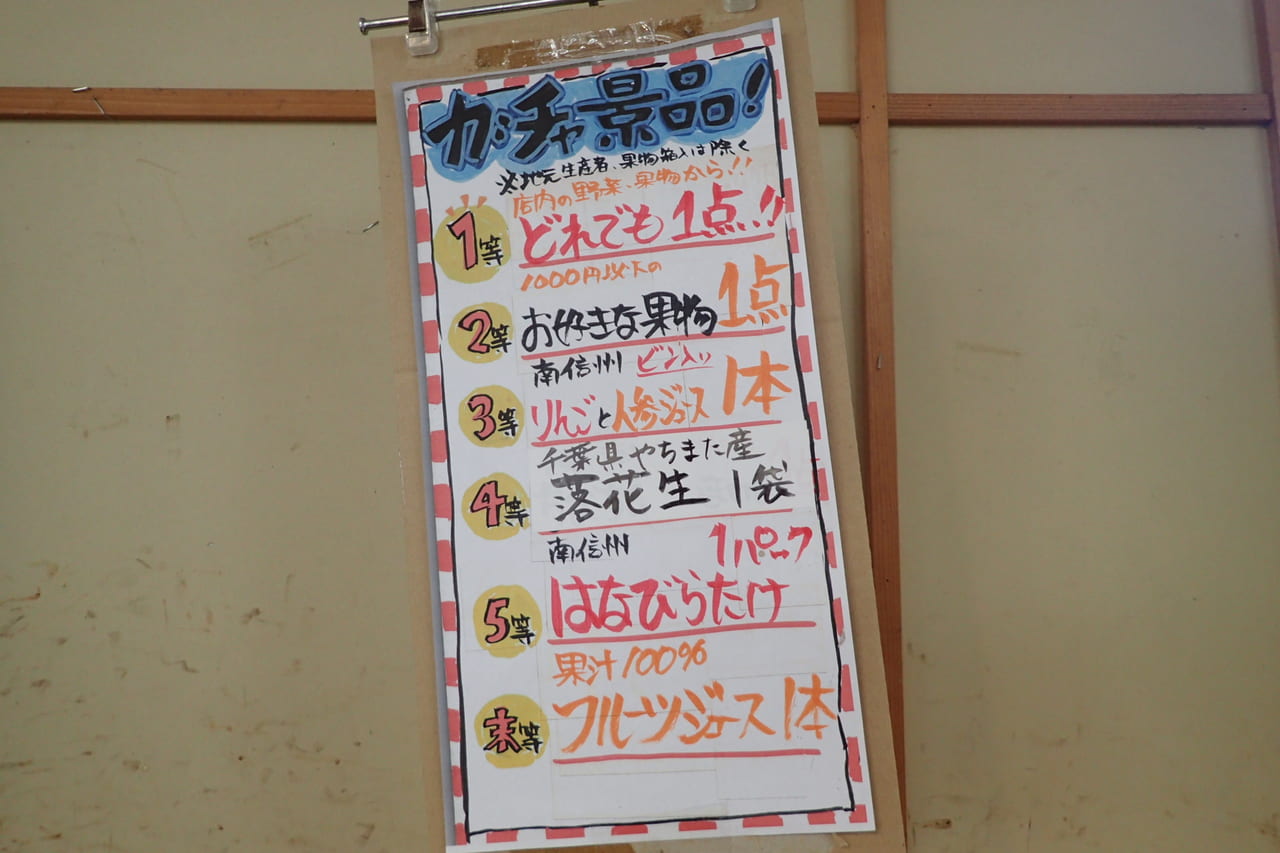 ガチャ景品!
※地元生産者、果物箱入は除く
店内の野菜、果物から!!
1等 どれでも 1点!!
1000円以下の
2等 お好きな果物 1点
南信州 ビン入り
3等 りんごと人参ジュース 1本
千葉県やちまた産
4等 落花生 1袋
南信州 1パック
5等 はなびらたけ
果汁100%
末等 フルーツジュース 1本